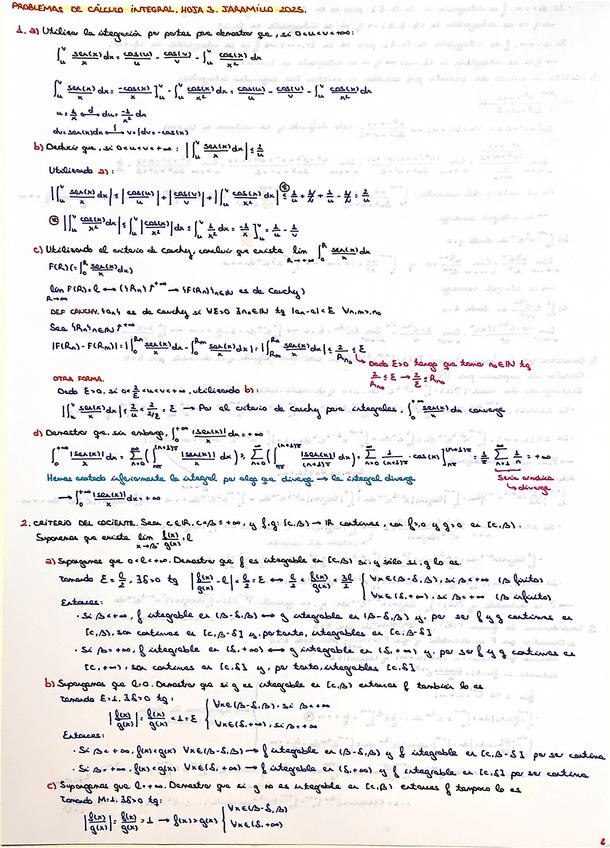 PROBLEMAS DE CÁLCULO INTEGRAL. HOJA 3. JARAMILLO 2025.
1. a) Utilizar la integración por partes para demostrar que, si 0<u<v<+∞:
∫_u^v sen(x)/x dx = cos(u)/u - cos(v)/v - ∫_u^v cos(x)/x² dx
∫_u^v sen(x)/x dx = -cos(x)/x ]_u^v - ∫_u^v cos(x)/x² dx = cos(u)/u - cos(v)/v - ∫_u^v cos(x)/x² dx
u = 1/x d→ du = -1/x² dx
dv = sen(x)dx ∫→ v = ∫dv = -cos(x)
b) Deducir que, si 0<u<v<+∞: |∫_u^v sen(x)/x dx| ≤ 2/u
Utilizando a):
|∫_u^v sen(x)/x dx| ≤ |cos(u)/u| + |cos(v)/v| + |∫_u^v cos(x)/x² dx| ≤ 1/u + 1/v + 1/u - 1/v = 2/u
|∫_u^v cos(x)/x² dx| ≤ ∫_u^v |cos(x)/x²| dx ≤ ∫_u^v 1/x² dx = -1/x ]_u^v = 1/u - 1/v
c) Utilizando el criterio de Cauchy, concluir que existe lim R→+∞ ∫_0^R sen(x)/x dx
F(R) (= ∫_0^R sen(x)/x dx)
lim R→∞ F(R) = l ↔ (∀{Rn}↑+∞ → {F(Rn)}n∈ℕ es de Cauchy)
DEF CAUCHY: {an} es de Cauchy si ∀ε>0 ∃n₀∈ℕ tq |an-am|<ε ∀n,m≥n₀
Sea {Rn}n∈ℕ↑+∞
|F(Rn)-F(Rm)| = |∫_0^Rn sen(x)/x dx - ∫_0^Rm sen(x)/x dx| = |∫_Rm^Rn sen(x)/x dx| ≤ 2/Rn₀ ≤ ε
Dado ε>0 tengo que tomar n₀∈ℕ tq
2/Rn₀ ≤ ε → 2/ε ≤ Rn₀
OTRA FORMA.
Dado ε>0, si 0<2/ε<u<v<+∞, utilizando b):
|∫_u^v sen(x)/x dx| ≤ 2/u < 2/(2/ε) = ε → Por el criterio de Cauchy para integrales, ∫_0^+∞ sen(x)/x dx converge
d) Demostrar que, sin embargo, ∫_0^+∞ |sen(x)|/x dx = +∞
∫_0^+∞ |sen(x)|/x dx = Σ_{n=0}^∞ (∫_{nπ}^{(n+1)π} |sen(x)|/x dx) ≥ Σ_{n=0}^∞ (∫_{nπ}^{(n+1)π} |sen(x)|/(n+1)π dx) = Σ_{n=0}^∞ 1/(n+1)π · cos(x)]_{nπ}^{(n+1)π} = 1/π Σ_{n=1}^∞ 1/n = +∞
Hemos acotado inferiormente la integral por algo que diverge → la integral diverge
Serie armónica
↳ diverge
→ ∫_0^+∞ |sen(x)|/x dx = +∞
2. CRITERIO DEL COCIENTE. Sean c∈ℝ, c<β≤+∞, y f,g: [c,β) → ℝ continuas, con f≥0 y g>0 en [c,β).
Suponemos que existe lim x→β⁻ f(x)/g(x) = l
a) Supongamos que 0<l<+∞. Demostrar que f es integrable en [c,β) si y sólo si g lo es.
Tomando ε = l/2, ∃δ>0 tq |f(x)/g(x) - l| < l/2 = ε ↔ l/2 < f(x)/g(x) < 3l/2 { ∀x∈(β-δ,β), si β<+∞ (β finito)
∀x∈(δ,+∞), si β=+∞ (β infinito)
Entonces:
· Si β<+∞, f integrable en (β-δ,β) ↔ g integrable en (β-δ,β) y, por ser f y g continuas en
[c,β), son continuas en [c,β-δ] y, por tanto, integrables en [c,β-δ]
· Si β=+∞, f integrable en (δ,+∞) ↔ g integrable en (δ,+∞) y, por ser f y g continuas en
[c,+∞), son continuas en [c,δ] y, por tanto, integrables [c,δ]
b) Supongamos que l=0. Demostrar que si g es integrable en [c,β) entonces f también lo es
Tomando ε=1, ∃δ>0 tq:
|f(x)/g(x)| = f(x)/g(x) < 1 = ε { ∀x∈(β-δ,β), si β<+∞
∀x∈(δ,+∞), si β=+∞
Entonces:
· Si β<+∞, f(x)<g(x) ∀x∈(β-δ,β) → f integrable en (β-δ,β) y f integrable en [c,β-δ] por ser continua
· Si β=+∞, f(x)<g(x) ∀x∈(δ,+∞) → f integrable en (δ,+∞) y f integrable en [c,δ] por ser continua
c) Supongamos que l=+∞. Demostrar que si g no es integrable en [c,β) entonces f tampoco lo es
Tomando M=1, ∃δ>0 tq:
|f(x)/g(x)| = f(x)/g(x) > 1 → f(x)>g(x) { ∀x∈(β-δ,β)
∀x∈(δ,+∞)